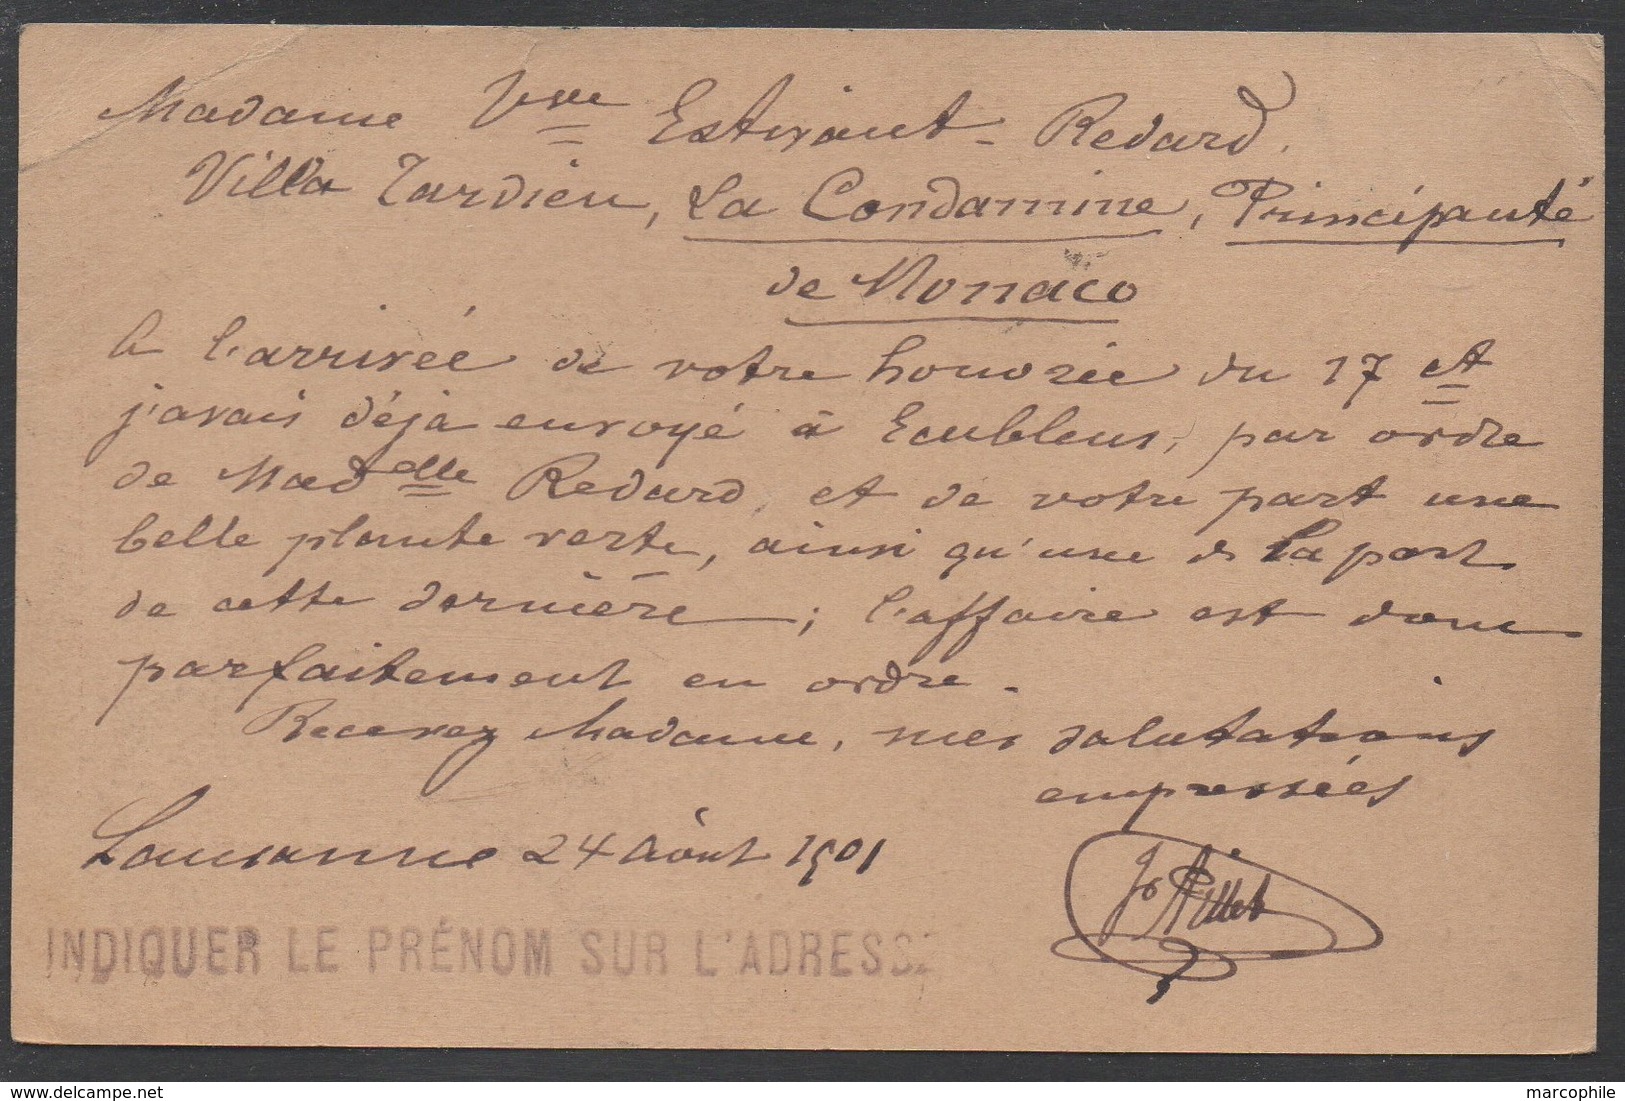 Madame Vve Estivant - Redard.
Villa Tardieu, La Condamine, Principauté
de Monaco
A l'arrivée de votre honorée du 17 ct
j'avais déjà envoyé à Ecublens, par ordre
de Madelle Redard, et de votre part une
belle plante verte, ainsi qu'une de la part
de cette dernière; l'affaire est donc
parfaitement en ordre.
Recevez Madame, mes salutations
empressées
Lausanne 24 Août 1901
INDIQUER LE PRÉNOM SUR L'ADRESSE
marcophile
delcampe.net